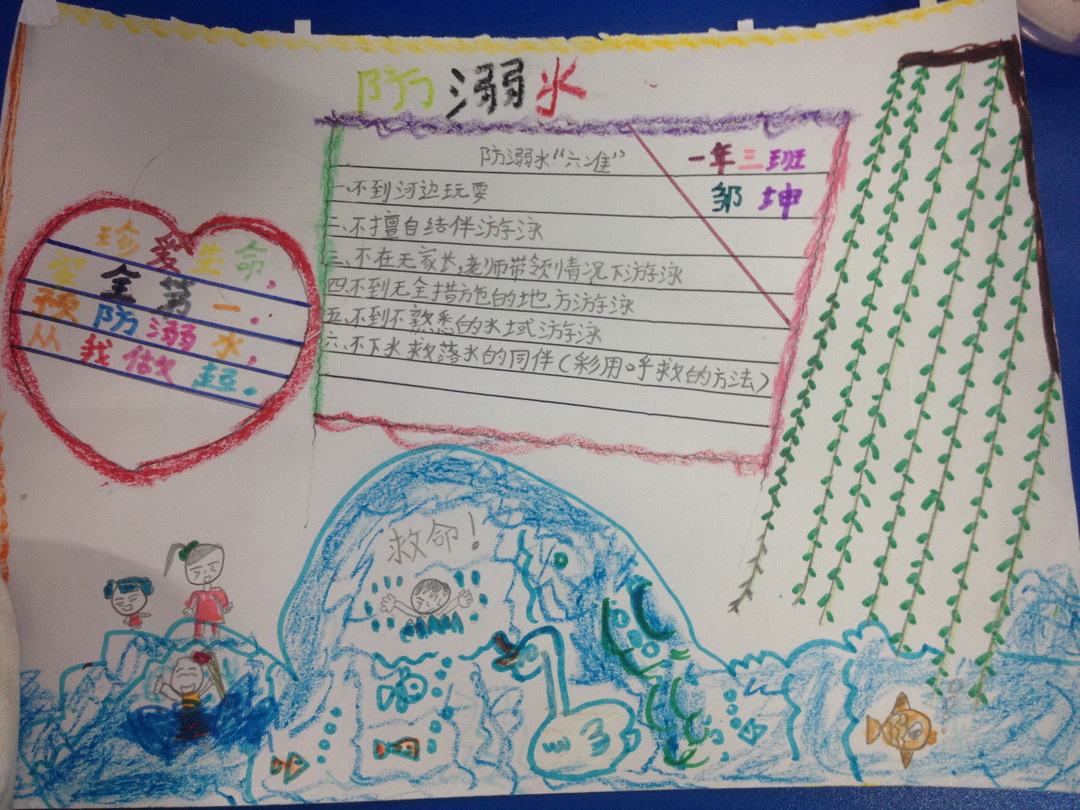 防溺水
防溺水“六准”
一年三班
邹坤
一、不到河边玩耍
二、不擅自结伴游泳
三、不在无家长,老师带领情况下游泳
四、不到无全措施的地方游泳
五、不到不熟悉的水域游泳
六、不下水救落水的同伴(彩用呼救的方法)
珍爱生命,
安全第一.
预防溺水,
从我做起.
救命!